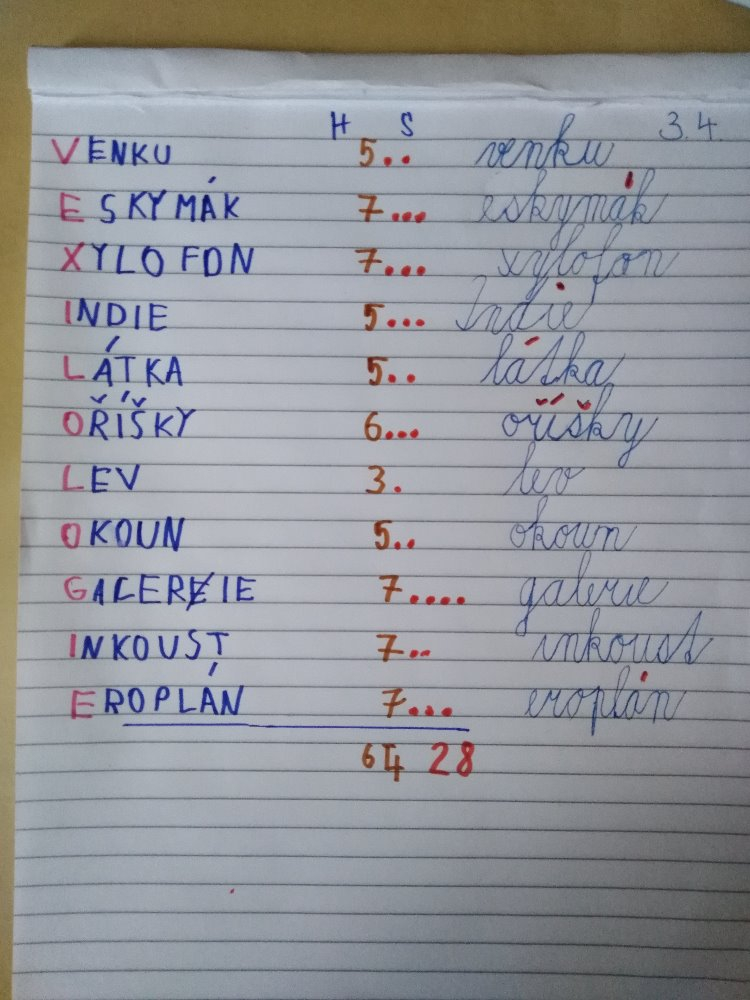 H S 3.4.
VENKU 5.. venku
ESKYMÁK 7... eskymák
XYLOFON 7... xylofon
INDIE 5... Indie
LÁTKA 5.. látka
OŘÍŠKY 6... oříšky
LEV 3. lev
OKOUN 5.. okoun
GALERIE 7.... galerie
INKOUST 7.. inkoust
EROPLÁN 7... eroplán
64 28